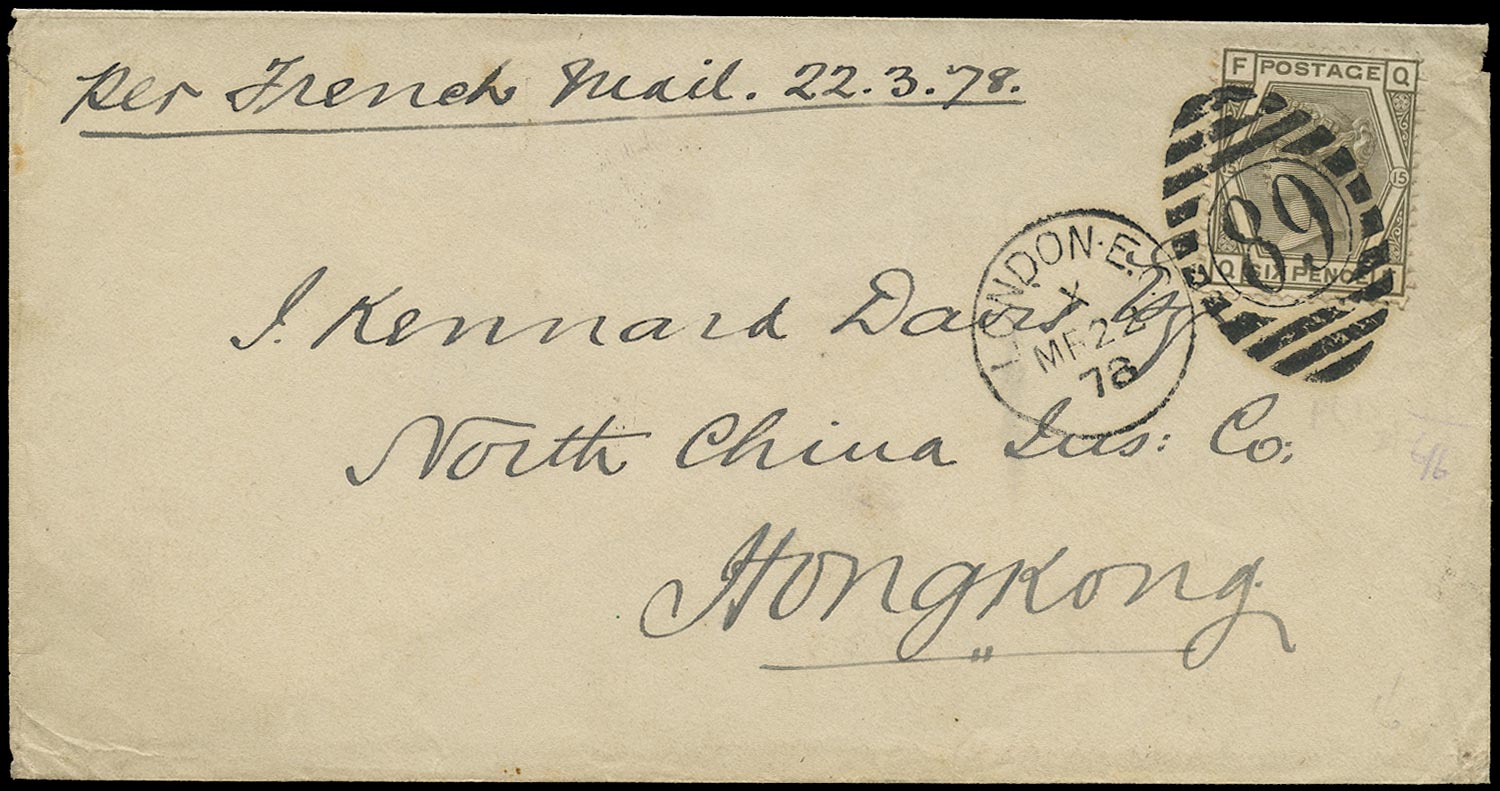 per French Mail. 22.3.78.
F POSTAGE Q
15 15
89
Q SIX PENCE F
LONDON·E.C
X
MR 22
78
J. Kennard Davis Esq
North China Ins: Co:
Hongkong